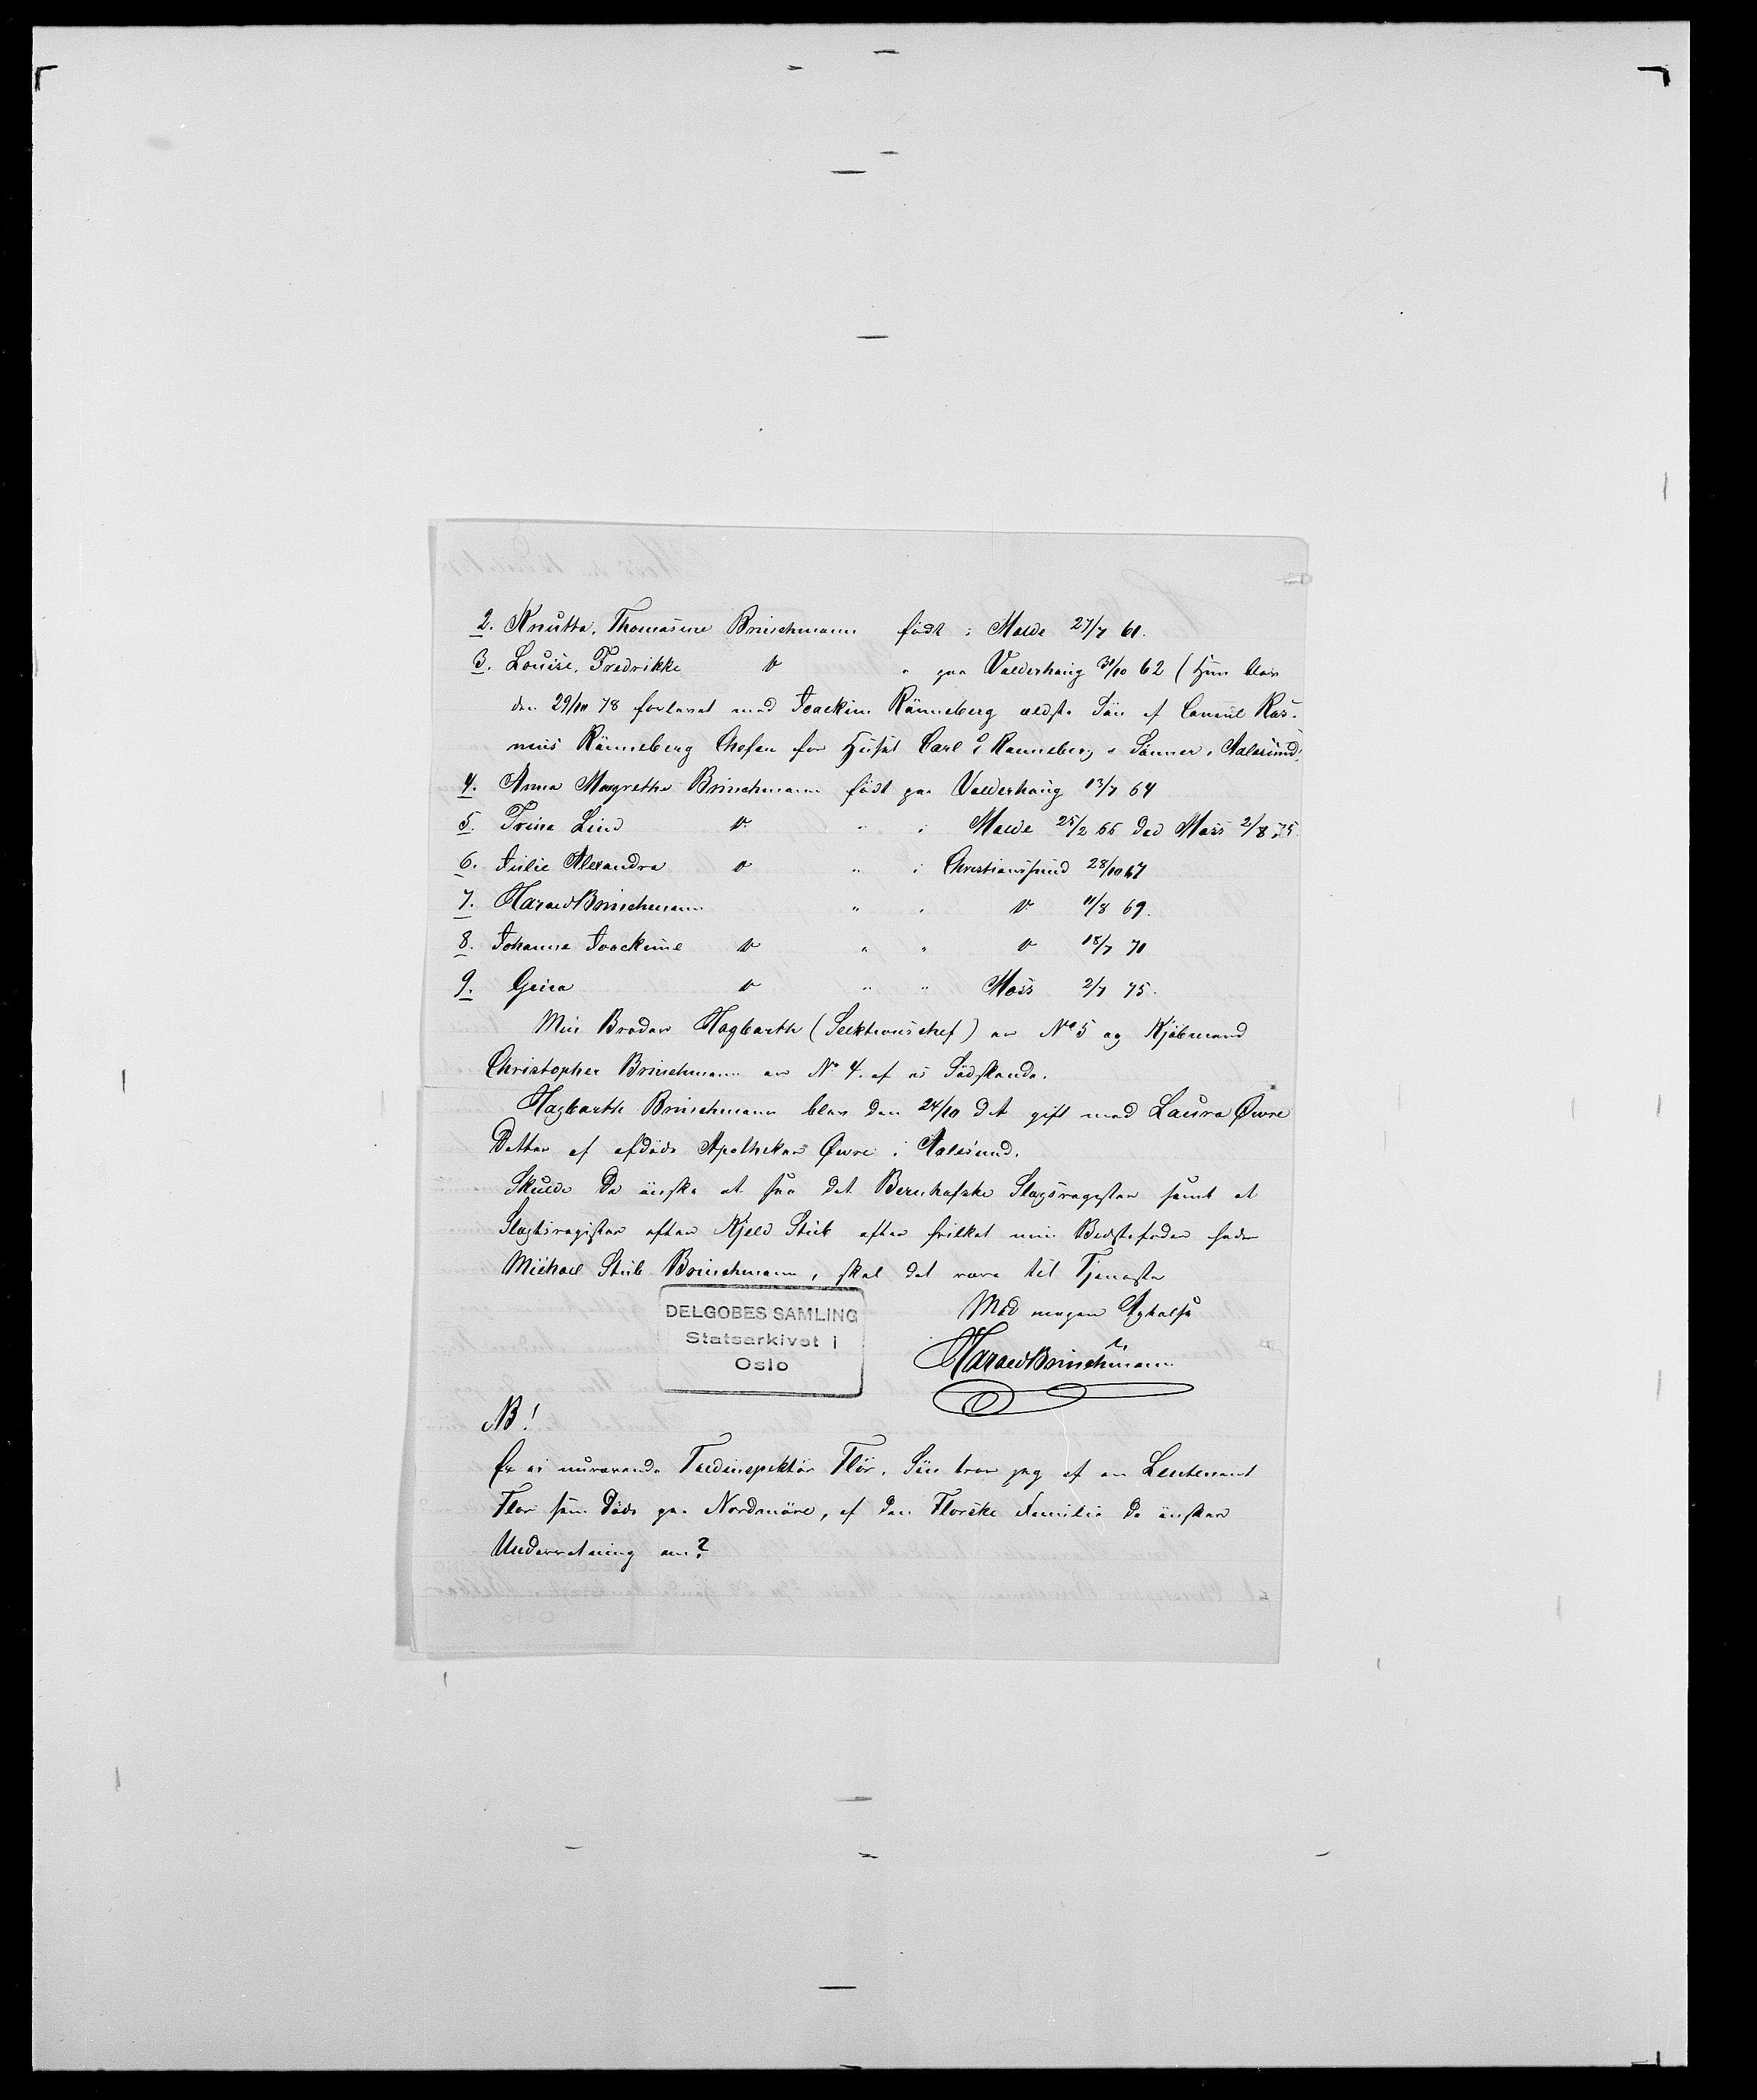 2. Knutta, Thomasine Brinchmann født i Molde 27/7 61.
3. Louise, Fredrikke " " paa Valderhaug 31/10 62 (Hun blev
den 29/10 78 forlovet med Joackim Rønneberg ældste Søn af Consul Ras-
mus Rønneberg Chefen for Huset Carl E Rønneberg & Sønner, Aalesund.
4. Anna Magrethe Brinchmann født paa Valderhaug 13/7 64
5. Trine Lind " " i Molde 25/2 66 død Moss 2/8 75.
6. Julie Alexandra " " i Christianssund 28/10 67
7. Harald Brinchmann " " " 11/8 69.
8. Johanna Joackime " " " " 18/7 71
9. " " " Moss 2/7 75.
Min Broder Hagbarth (Sektionschef) er No 5 og Kjøbmand
Christopher Brinchmann er No 4. af os Sødskende.
Hagbarth Brinchmann blev den 24/10 gift med Laura Øwre
Datter af afdøde Apotheker Øwre i Aalesund.
Skulde De ønske at faa det Bernhofske Slægsregister samt et
Slægtsregister efter Kjeld Stub efter hvilket min Bedstefader hedder
Michael Stub Brinchmann, skal det være til Tjeneste
Med megen Agtelse
Harald Brinchmann
DELGOBES SAMLING
Statsarkivet i
Oslo
NB!
Er ei nuværende Toldinspektør Flor, Søn tror jeg af en Leutenant
Flor som døde paa Nordmøre, af den Florske Familie De ønsker
Underretning om?